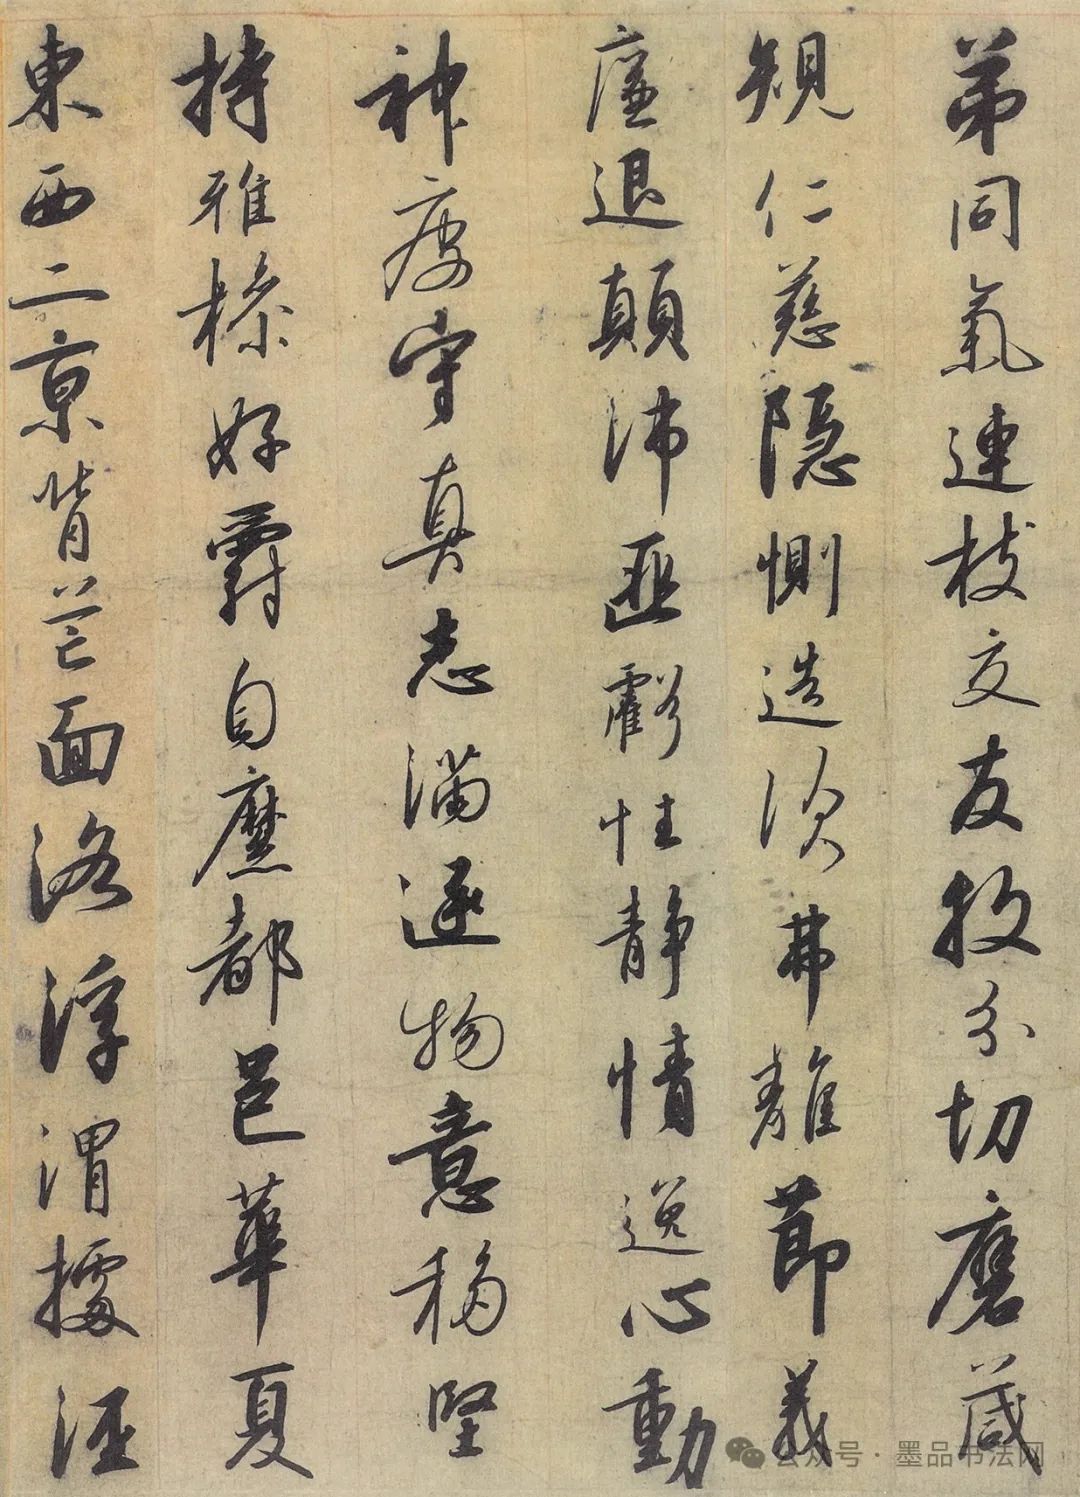 弟同氣連枝交友投分切磨箴
規仁慈隱惻造次弗離節義
廉退顛沛匪虧性靜情逸心動
神疲守真志滿逐物意移堅
持雅操好爵自縻都邑華夏
東西二京背芒面洛浮渭據涇
公众号·墨品书法网